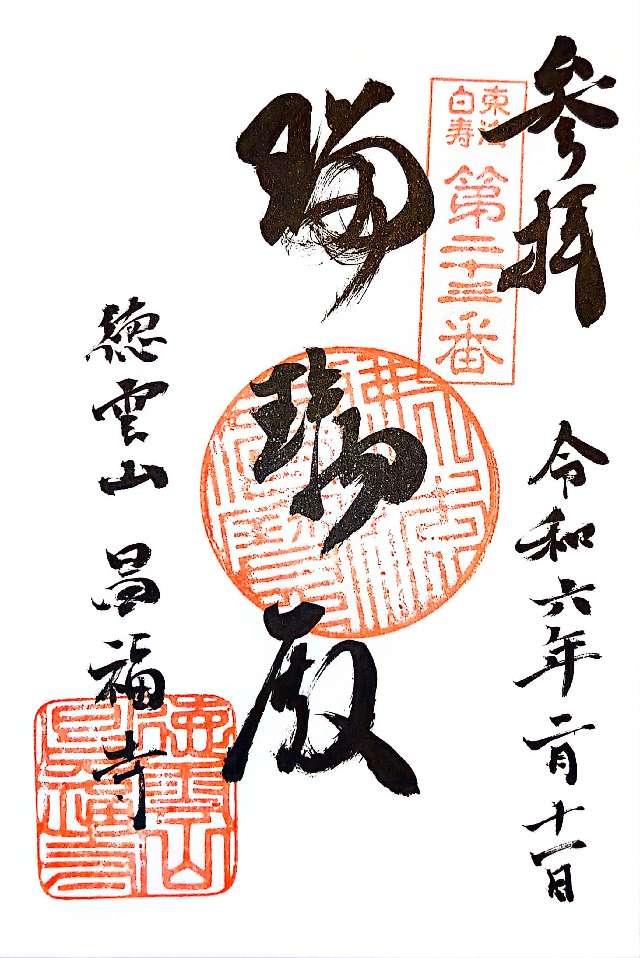 参拝
令和六年二月十一日
東海
白寿
第二十三番
瑠璃殿
徳雲山 昌福寺
徳雲山
昌福寺